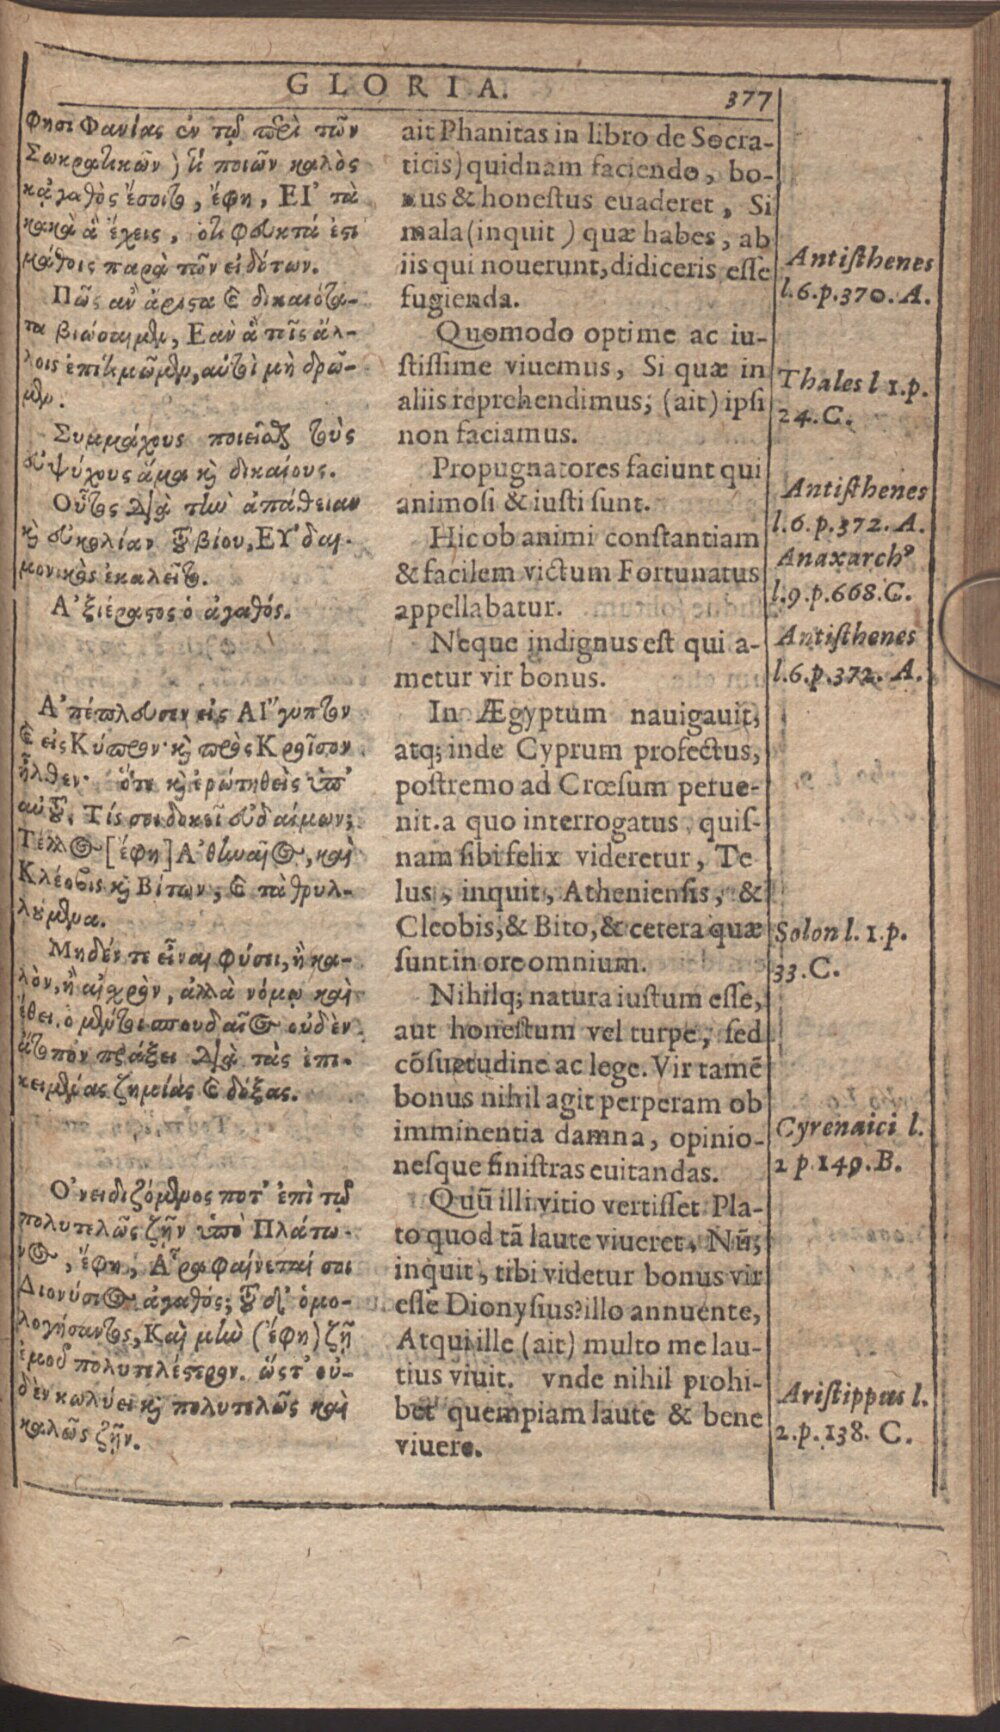 GLORIA.
377
φησι Φανίας ἐν τῷ περὶ τῶν
Σωκρατικῶν) τί ποιῶν καλὸς
κἀγαθὸς ἔσοιτο, ἔφη, ΕΙ' τὰ
κακὰ ἃ ἔχεις, ὅτι φευκτά ἐστι
μάθοις παρὰ τῶν εἰδότων.
Πῶς ἂν ἄριστα καὶ δικαιότα-
τα βιώσαιμεν, Εαν ἃ τοῖς ἄλ-
λοις ἐπιτιμῶμεν, αὐτοὶ μὴ δρῶ-
μεν.
Συμμάχους ποιεῖσθαι τοὺς
εὐψύχους ἅμα καὶ δικαίους.
Οὗτος διὰ τὴν ἀπάθειαν
καὶ εὐκολίαν τοῦ βίου, ΕΥ'δαι-
μονικὸς ἐκαλεῖτο.
Α'ξιέραστος ὁ ἀγαθός.
Α'πέπλευσεν εἰς ΑΙ"γυπτον
καὶ εἰς Κύπρον· καὶ πρὸς Κροῖσον
ἦλθεν· ὅτε καὶ ἐρώτηθεὶς ὑπ'
αὐτοῦ, Τίς σοι δοκεῖ εὐδαίμων;
Τέλλος [ἔφη] Α'θηναῖος, καὶ
Κλέοβις καὶ Βίτων, καὶ τὰ θρυλ-
λούμενα.
Μηδέν τε εἶναι φύσει, ἢ κα-
λὸν, ἢ αἰχρὸν, ἀλλὰ νόμῳ καὶ
ἔθει. ὁ μέντοι σπουδαῖος οὐδὲν
ἄτοπον πράξει διὰ τὰς ἐπι-
κειμένας ζημείας καὶ δόξας.
Ο'νειδιζόμενος ποτ' ἐπὶ τῷ
πολυτελῶς ζῆν ὑπὸ Πλάτω-
νος, ἔφη, Α῏ρα φαίνεταί σοι
Διονύσιος ἀγαθός; τοῦ δ' ὁμο-
λογήσαντος, Καὶ μὴν (ἔφη) ζῇ
ἐμοῦ πολυτελέστερον. ὥστ' οὐ-
δὲν κωλύει καὶ πολυτελῶς καὶ
καλῶς ζῆν.
ait Phanitas in libro de Socra-
ticis) quidnam faciendo, bo-
nus & honestus euaderet, Si
mala (inquit) quæ habes, ab
iis qui nouerunt, didiceris esse
fugienda.
Quomodo optime ac iu-
stissime viuemus, Si quæ in
aliis reprehendimus; (ait) ipsi
non faciamus.
Propugnatores faciunt qui
animosi & iusti sunt.
Hic ob animi constantiam
& facilem victum Fortunatus
appellabatur.
Neque indignus est qui a-
metur vir bonus.
In Ægyptum nauigauit,
atq; inde Cyprum profectus,
postremo ad Crœsum perue-
nit. a quo interrogatus, quis-
nam sibi felix videretur, Te
lus, inquit, Atheniensis, &
Cleobis, & Bito, & cetera quæ
sunt in ore omnium.
Nihilq; natura iustum esse,
aut honestum vel turpe, sed
cõsuetudine ac lege. Vir tamẽ
bonus nihil agit perperam ob
imminentia damna, opinio-
nesque sinistras euitandas.
Quũ illi vitio vertisset Pla-
to quod tã laute viueret, Nũ,
inquit, tibi videtur bonus vir
esse Dionysius? illo annuente,
Atqui ille (ait) multo me lau-
tius viuit. vnde nihil prohi-
bet quempiam laute & bene
viuere.
Antisthenes
l.6.p.370. A.
Thales l 1.p.
24.C.
Antisthenes
l.6.p.372. A.
Anaxarchꝰ
l.9.p.668.C.
Antisthenes
l.6.p.372. A.
Solon l. 1.p.
33.C.
Cyrenaici l.
2 p 149.B.
Aristippus l.
2.p.138. C.